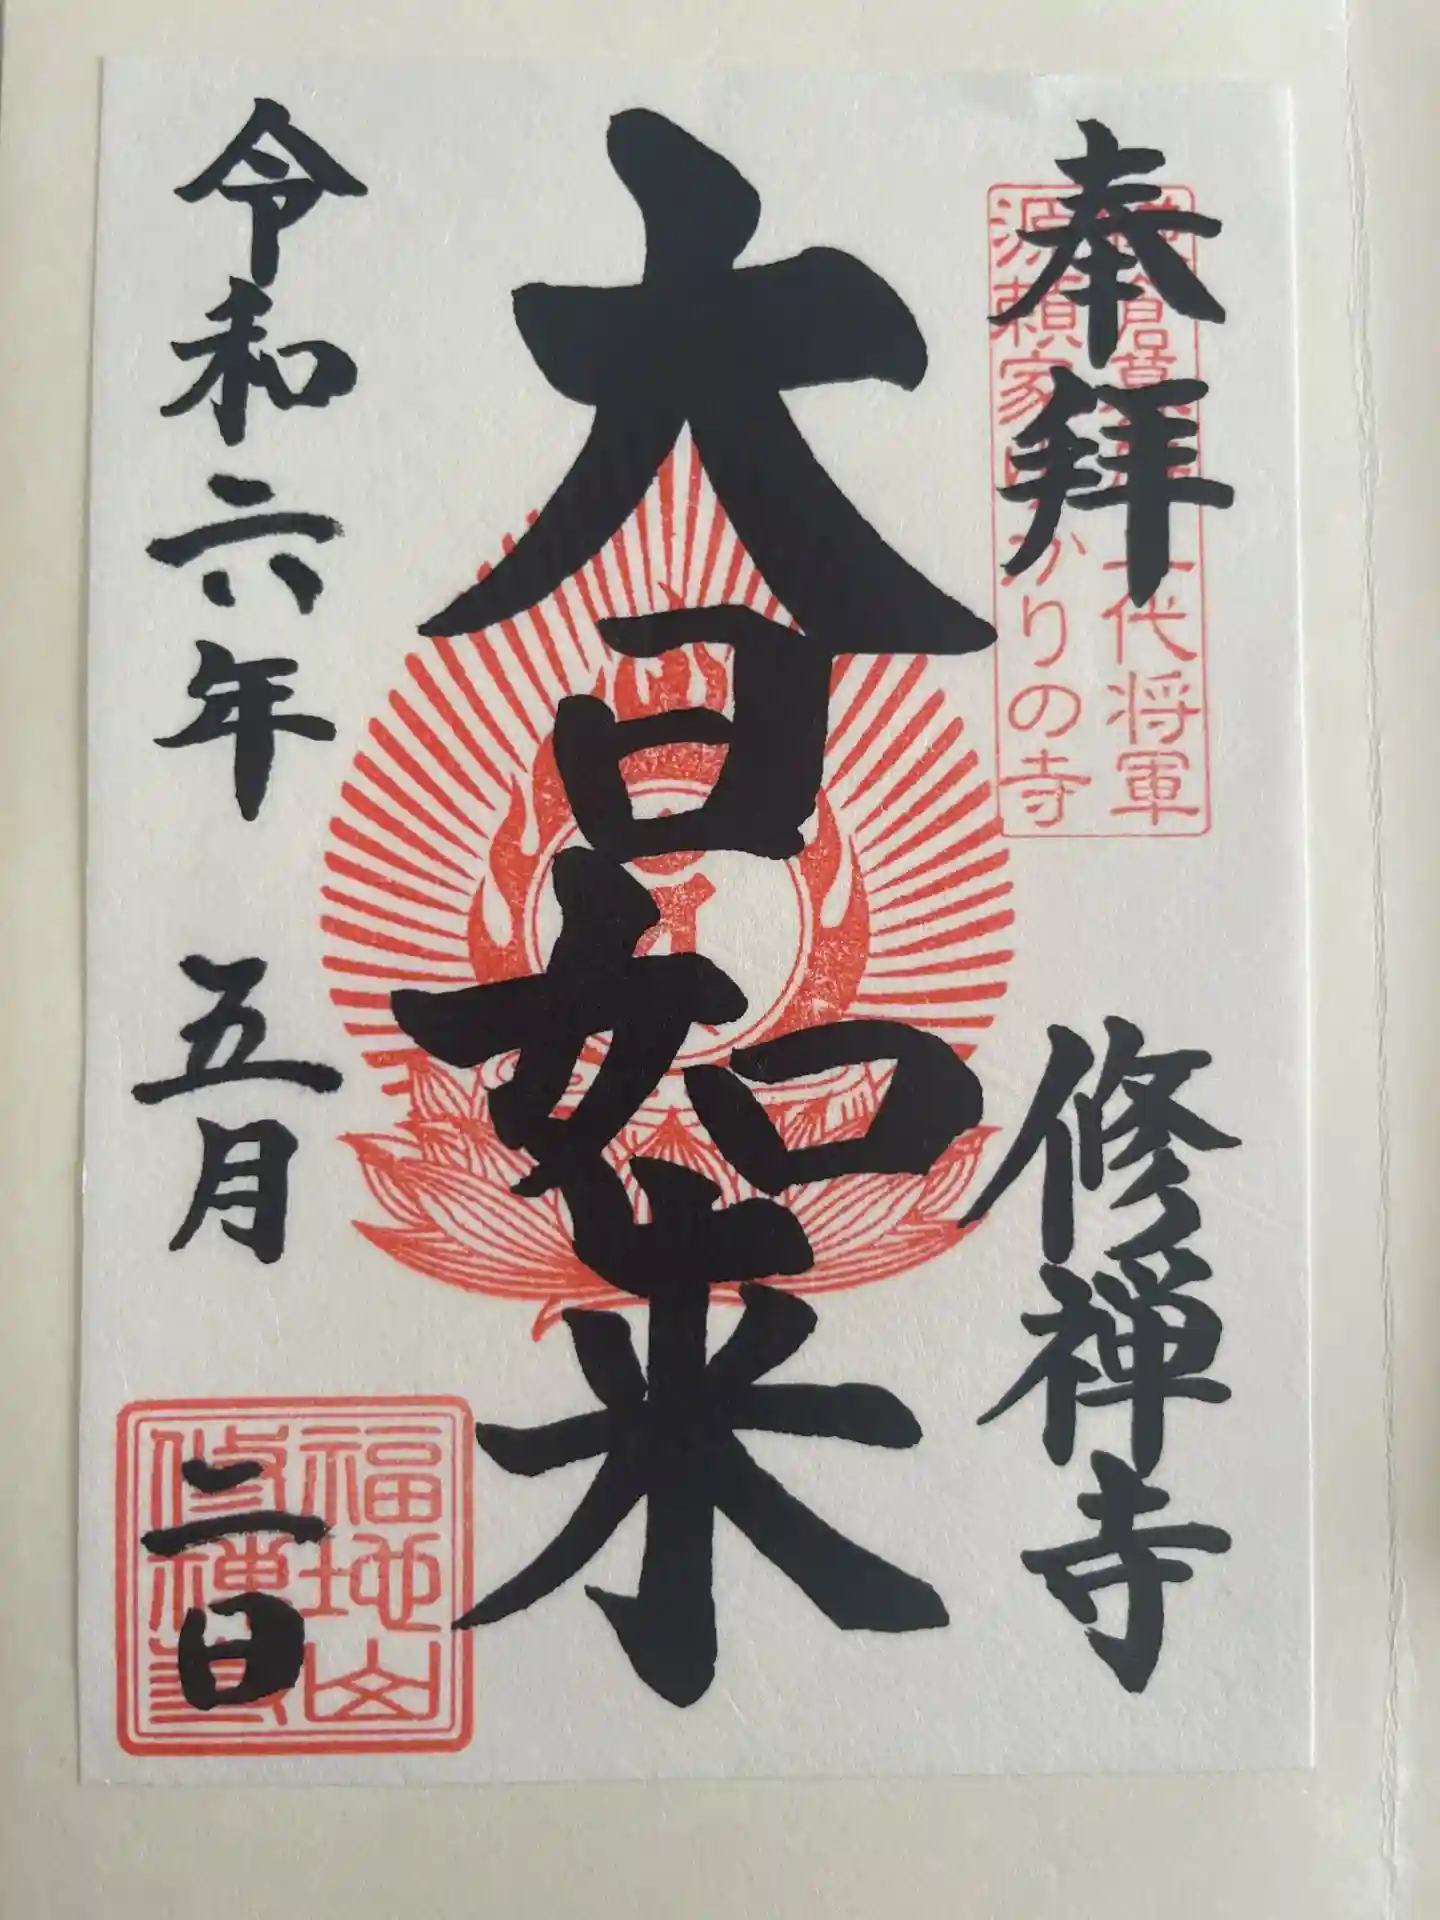 奉拝
修禅寺
代将軍
源頼家ゆかりの寺
大日如来
令和六年 五月 二日
福地山
修禅寺